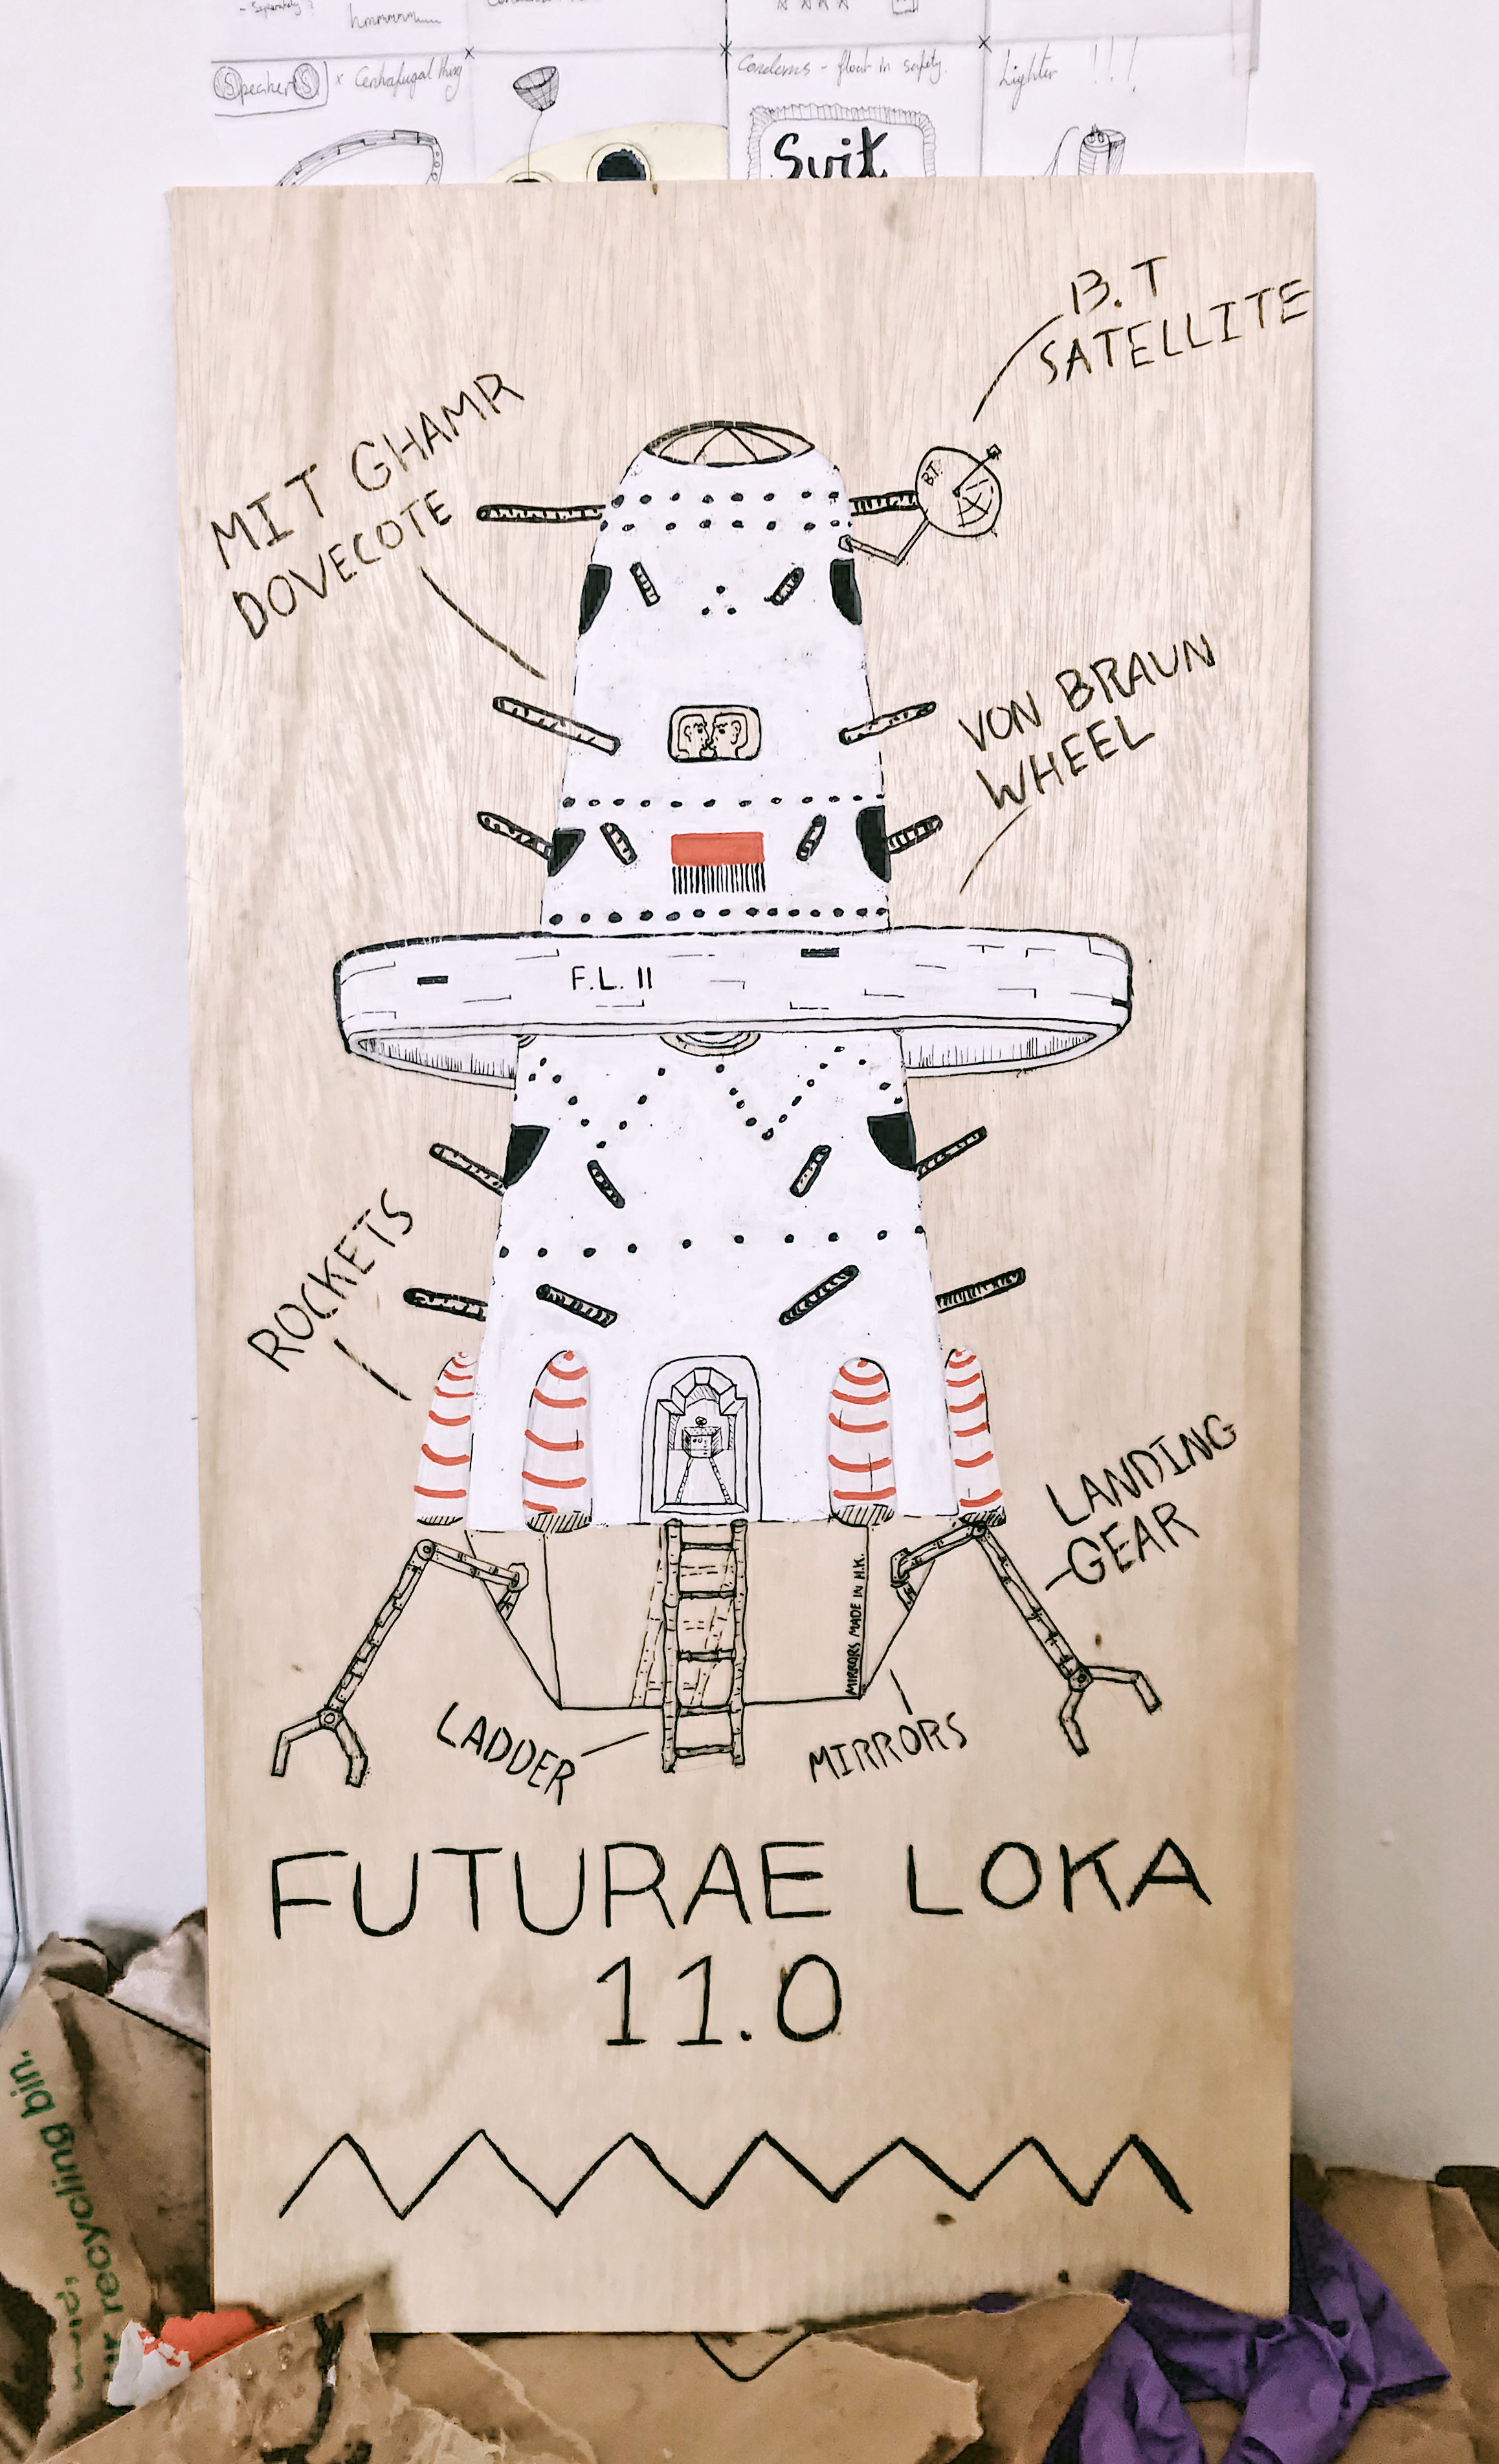 hmmmmm
Speakers x Centrafugal thing
Condoms - float in safety.
Lighter !!!
Suit
B.T
SATELLITE
MIT GHAMR
DOVECOTE
B.T.
VON BRAUN
WHEEL
F.L. 11
ROCKETS
LANDING
GEAR
MIRRORS MADE IN H.K.
LADDER
MIRRORS
FUTURAE LOKA
11.0
recycling bin.